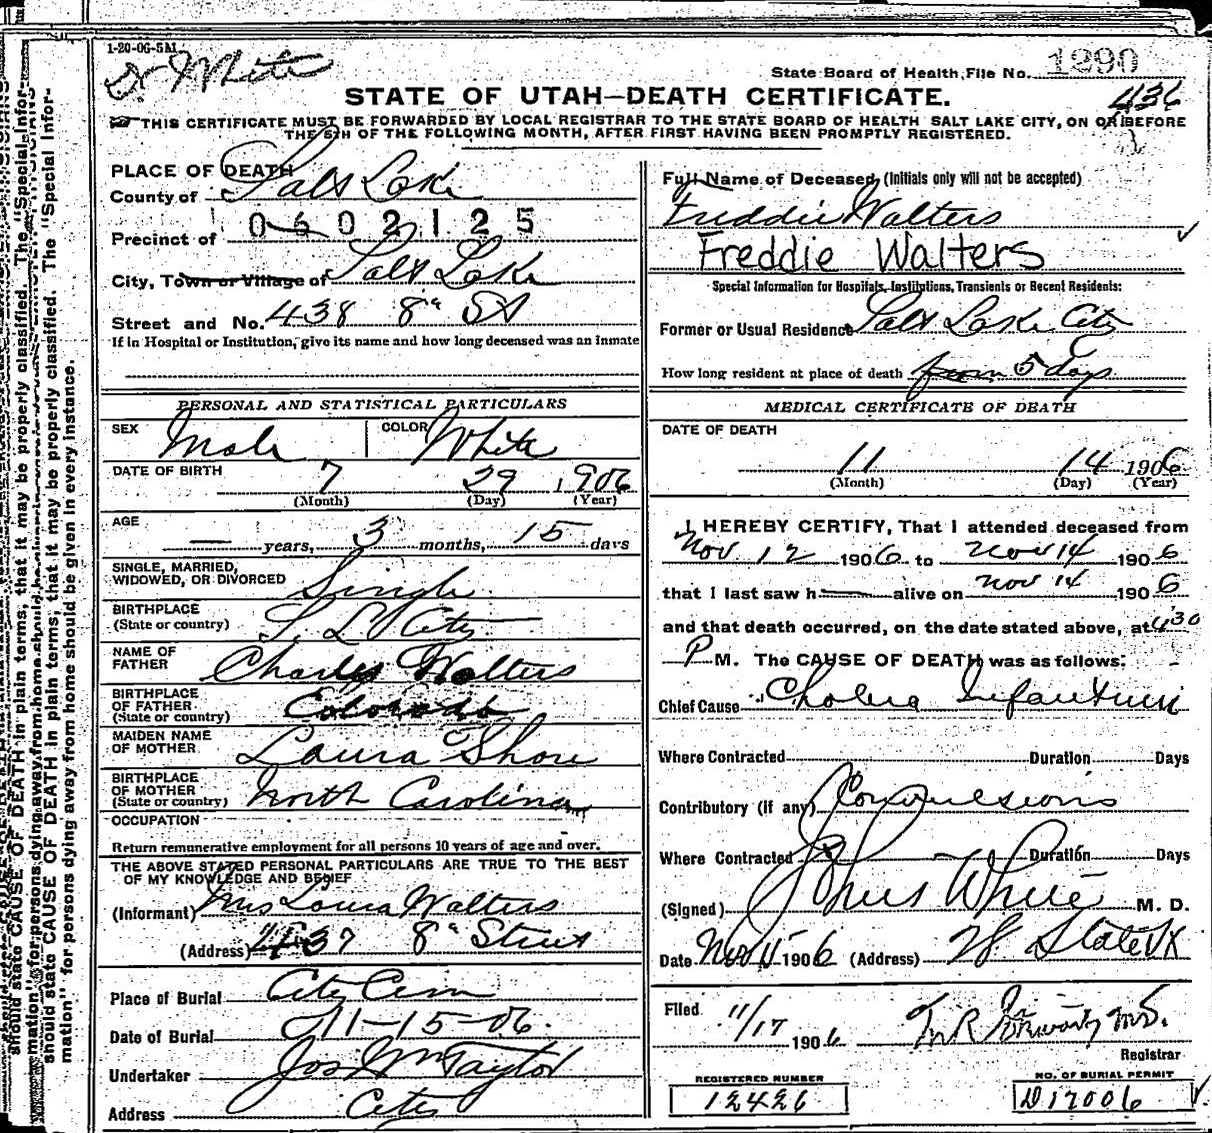 1-20-06-5M
Dr White
State Board of Health File No. 1290
STATE OF UTAH—DEATH CERTIFICATE.
436
THIS CERTIFICATE MUST BE FORWARDED BY LOCAL REGISTRAR TO THE STATE BOARD OF HEALTH SALT LAKE CITY, ON OR BEFORE
THE 5TH OF THE FOLLOWING MONTH, AFTER FIRST HAVING BEEN PROMPTLY REGISTERED.
should state CAUSE OF DEATH in plain terms, that it may be properly classified. The "Special Infor-
mation" for persons dying away from home should be given in every instance.
PLACE OF DEATH
County of Salt Lake
Precinct of 0602125
City, Town or Village of Salt Lake
Street and No. 438 8" St
If in Hospital or Institution, give its name and how long deceased was an inmate
PERSONAL AND STATISTICAL PARTICULARS
SEX Male COLOR White
DATE OF BIRTH
7 29 1906
(Month) (Day) (Year)
AGE
— years, 3 months, 15 days
SINGLE, MARRIED,
WIDOWED, OR DIVORCED Single
BIRTHPLACE
(State or country) S. L. City
NAME OF
FATHER Charles Walters
BIRTHPLACE
OF FATHER
(State or country) Colorado
MAIDEN NAME
OF MOTHER Laura Shore
BIRTHPLACE
OF MOTHER
(State or country) North Carolina
OCCUPATION
Return remunerative employment for all persons 10 years of age and over.
THE ABOVE STATED PERSONAL PARTICULARS ARE TRUE TO THE BEST
OF MY KNOWLEDGE AND BELIEF
(Informant) Mrs Laura Walters
(Address) 437 8" Street
Place of Burial City Cem
Date of Burial 11-15-06.
Undertaker Jos Wm Taylor
Address City
Full Name of Deceased (Initials only will not be accepted)
Freddie Walters
Freddie Walters
Special Information for Hospitals, Institutions, Transients or Recent Residents:
Former or Usual Residence Salt Lake City
How long resident at place of death from 5 days
MEDICAL CERTIFICATE OF DEATH
DATE OF DEATH
11 14 1906
(Month) (Day) (Year)
I HEREBY CERTIFY, That I attended deceased from
Nov 12 1906 to Nov 14 1906
that I last saw h— alive on Nov 14 1906
and that death occurred, on the date stated above, at 4 30
P M. The CAUSE OF DEATH was as follows:
Chief Cause Cholera Infantum
Where Contracted Duration Days
Contributory (if any) Convulsions
Where Contracted Duration Days
(Signed) White M. D.
Date Nov 15 1906 (Address) State St
Filed 11/17 1906
Registrar
REGISTERED NUMBER
12426
NO. OF BURIAL PERMIT
D17006